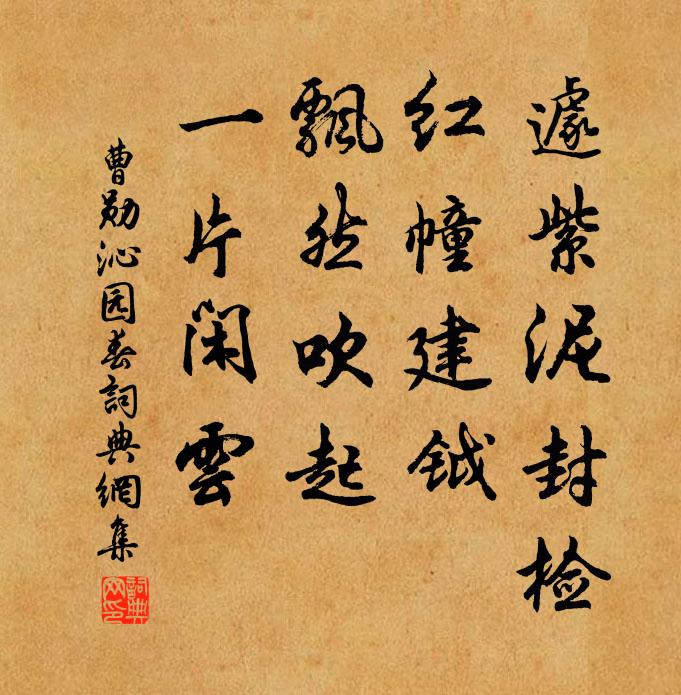 遽紫泥封检
红幢建钺
飘然吹起
一片闲雲
曹勋沁园春詞典網集
詞典网印